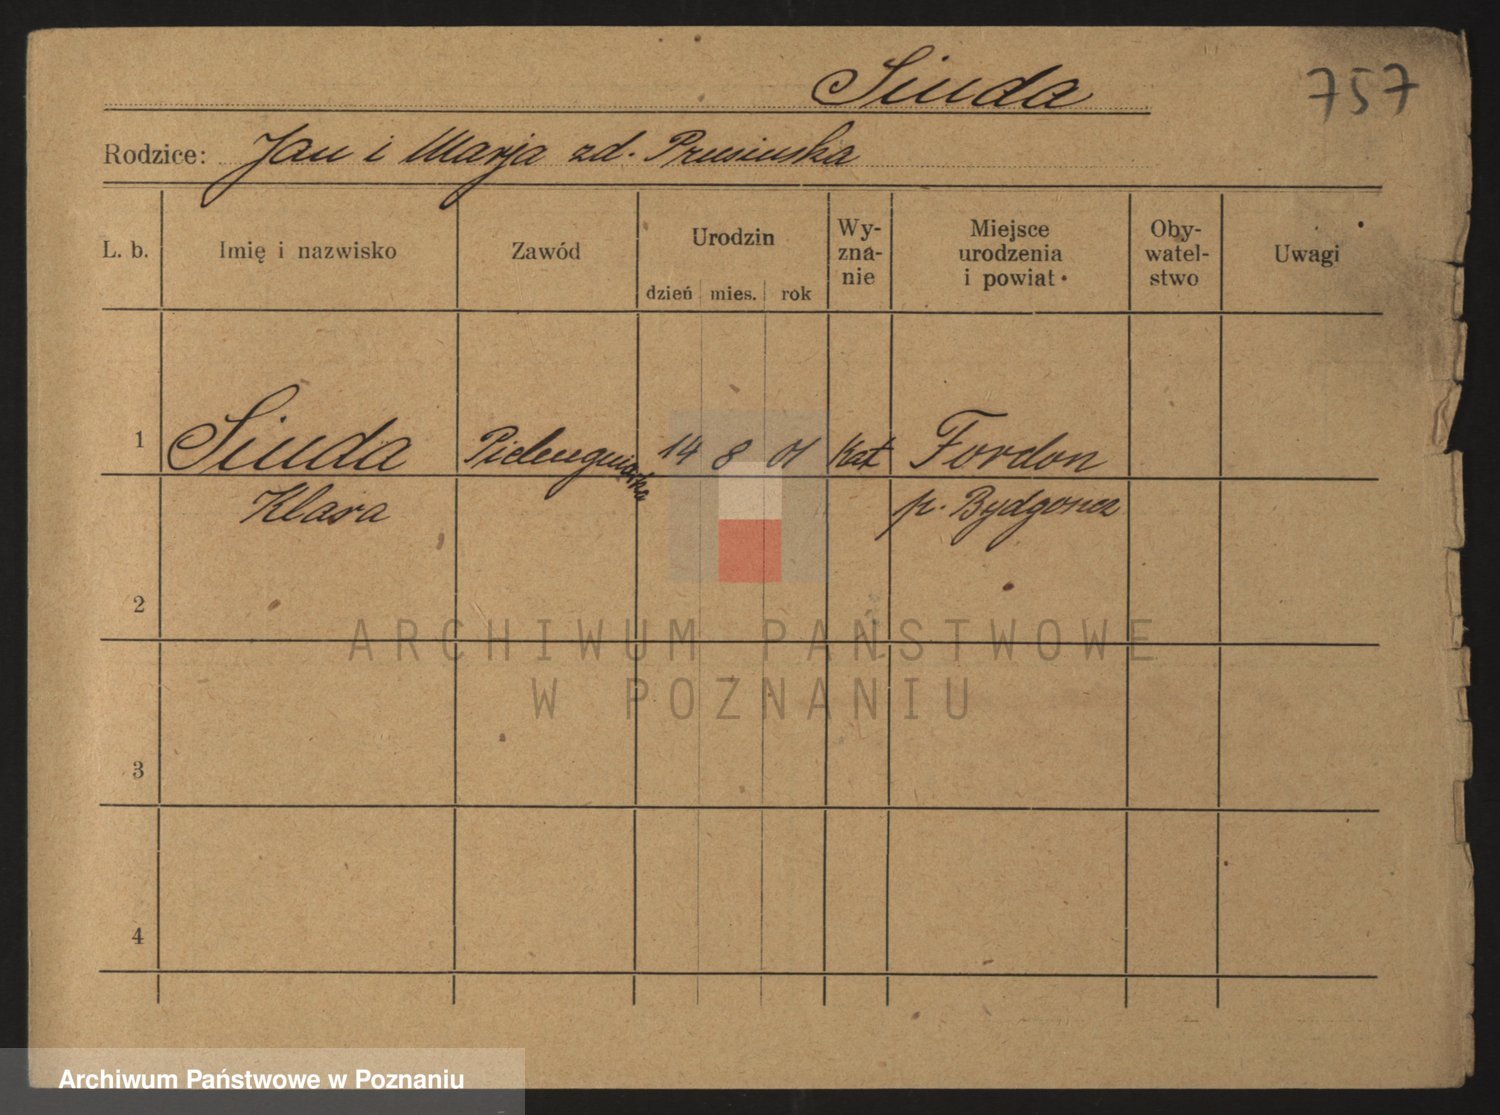 Siuda
757
Rodzice: Jan i Marja zd. Prusinska
L. b.
Imię i nazwisko
Zawód
Urodzin
dzień mies. rok
Wy-
zna-
nie
Miejsce
urodzenia
i powiat
Oby-
watel-
stwo
Uwagi
1 Siuda Pielengniarka 14 8 01 Kat Fordon
Klara p. Bydgoszcz
2
3
4
ARCHIWUM PAŃSTWOWE
W POZNANIU
Archiwum Państwowe w Poznaniu